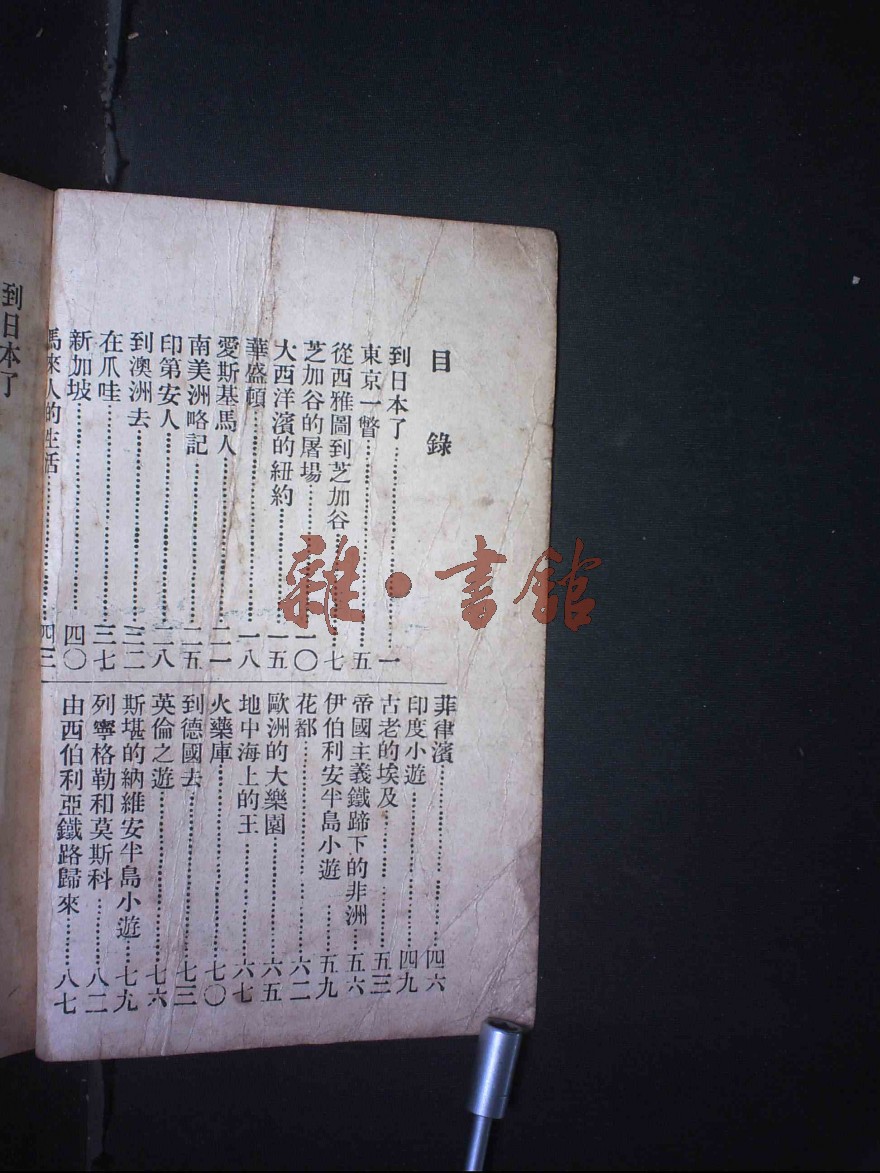 目錄
到日本了……一
東京一瞥……五
從西雅圖到芝加谷……七
芝加谷的屠場……一〇
大西洋濱的紐約……一五
華盛頓……一八
愛斯基馬人……二一
南美洲略記……二五
印第安人……二八
到澳洲去……三二
在爪哇……三七
新加坡……四〇
馬來人的生活……四三
菲律濱……四六
印度小遊……四九
古老的埃及……五三
帝國主義鐵蹄下的非洲……五六
伊伯利安半島小遊……五九
花都……六二
歐洲的大樂園……六五
地中海上的王……六七
火藥庫……七〇
到德國去……七三
英倫之遊……七六
斯堪的納維安半島小遊……七九
列寧格勒和莫斯科……八二
由西伯利亞鐵路歸來……八七
到日本了
雜·書館